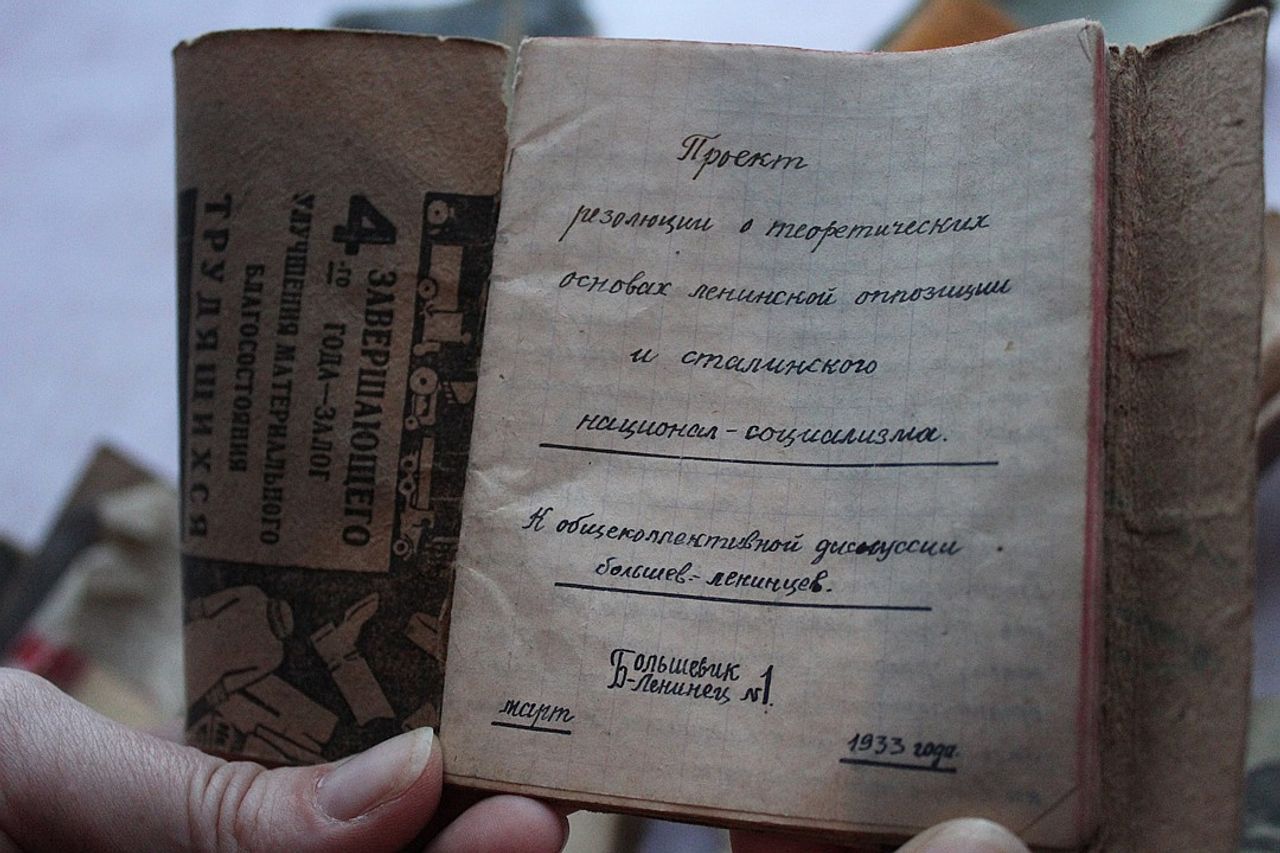 4 ЗАВЕРШАЮЩЕГО
-го ГОДА — ЗАЛОГ
УЛУЧШЕНИЯ МАТЕРИАЛЬНОГО
БЛАГОСОСТОЯНИЯ
ТРУДЯЩИХСЯ
Проект
резолюции о теоретических
основах ленинской оппозиции
и сталинского
национал-социализма.
К общеколлективной дискуссии
большев.-ленинцев.
Большевик
-Ленинец №1.
март
1933 года.